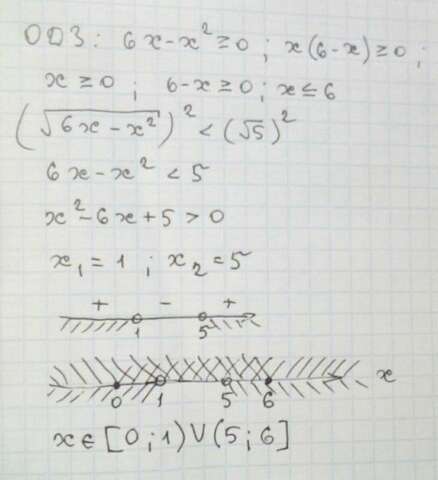 ОДЗ: 6x-x²≥0; x(6-x)≥0;
x≥0; 6-x≥0; x≤6
(√(6x-x²))² < (√5)²
6x-x² < 5
x²-6x+5>0
x₁=1; x₂=5
+ - +
1 5
x
0 1 5 6
x∈[0;1)∪(5;6]